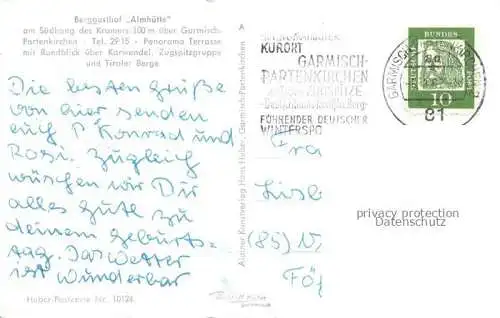 Berggasthof "Almhütte"
am Südhang des Kramers 100 m über Garmisch-
Partenkirchen - Tel. 2915 - Panorama Terrasse
mit Rundblick über Karwendel, Zugspitzgruppe
und Tiroler Berge
Die besten Grüße
von hier senden
euch Konrad und
Rosi. Zugleich
wünschen wir Dir
alles Gute zu
deinem Geburts-
tag. Das Wetter
ist wunderbar
Huber-Postkarte Nr. 10124
Alpiner Kunstverlag Hans Huber, Garmisch-Partenkirchen
KURORT
GARMISCH-
PARTENKIRCHEN
ZUGSPITZE
FÜHRENDER DEUTSCHER
WINTERSPO
GARMISCH
81
DEUTSCHE
BUNDES
POST
10
Fra
(85) N
privacy protection
Datenschutz